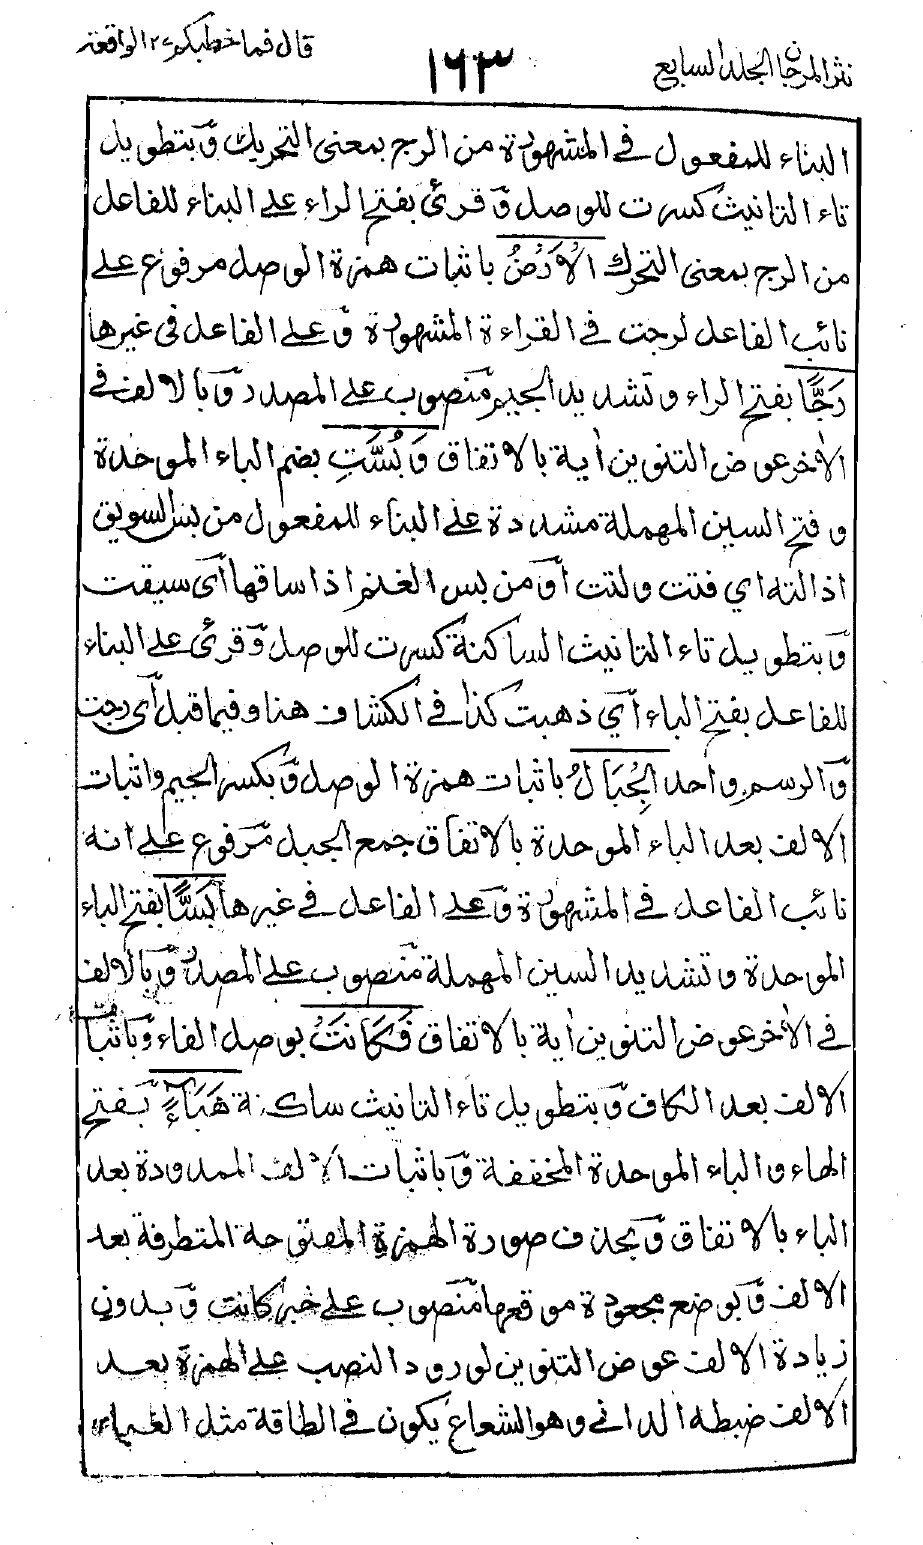 نثر المرجان الجلد السابع
١٦٣
قال فما خطبكم ٢٧ الواقعة
البناء للمفعول في المشهورة من الرج بمعنى التحريك وّبتطويل
تاء التانيث كسرت للوصل وّقرئ بفتح الراء على البناء للفاعل
من الرج بمعنى التحرك الْاَرْضُ باثبات همزة الوصل مرفوع على
نائب الفاعل لرجت في القراءة المشهورة وّعلى الفاعل في غيرها
رَجًّا بفتح الراء وتشديد الجيم منّصوب على المصدر وّبالالف في
الأخر عوض التنوين أية بالاتفاق وَبُسَّتِ بضم الباء الموحدة
وفتح السين المهملة مشددة على البناء للمفعول من بس السويق
اذا لته اي فتت ولتت اوّ من بس الغنم اذا ساقها ايّ سيقت
وّبتطويل تاء التانيث الساكنة كسرت للوصل وّقرئ على البناء
للفاعل بفتح الباء ايّ ذهبت كذا في الكشاف هنا وفيما قبل ايّ رجت
وّالرسم واحد الْجِبَالُ باثبات همزة الوصل وّبكسر الجيم واثبات
الالف بعد الباء الموحدة بالاتفاق جمع الجبل مرّفوع على انه
نائب الفاعل في المشهورة وّعلى الفاعل في غيرها بَسًّا بفتح الباء
الموحدة وتشديد السين المهملة منّصوب على المصدر وّبالالف
في الأخر عوض التنوين أية بالاتفاق فَكَانَتْ بوصل الفاء وّباثبات
الالف بعد الكاف وّبتطويل تاء التانيث ساكنة هَبَآءً بّفتح
الهاء والباء الموحدة المخففة وّباثبات الالف الممدودة بعد
الباء بالاتفاق وّبحذف صورة الهمزة المفتوحة المتطرفة بعد
الالف وّبوضع مجعودة موقعها منّصوب على خبر كانت وّبدون
زيادة الالف عوض التنوين لورود النصب على الهمزة بعد
الالف ضبطه الداني وهو الشعاع يكون في الطاقة مثل الغبار